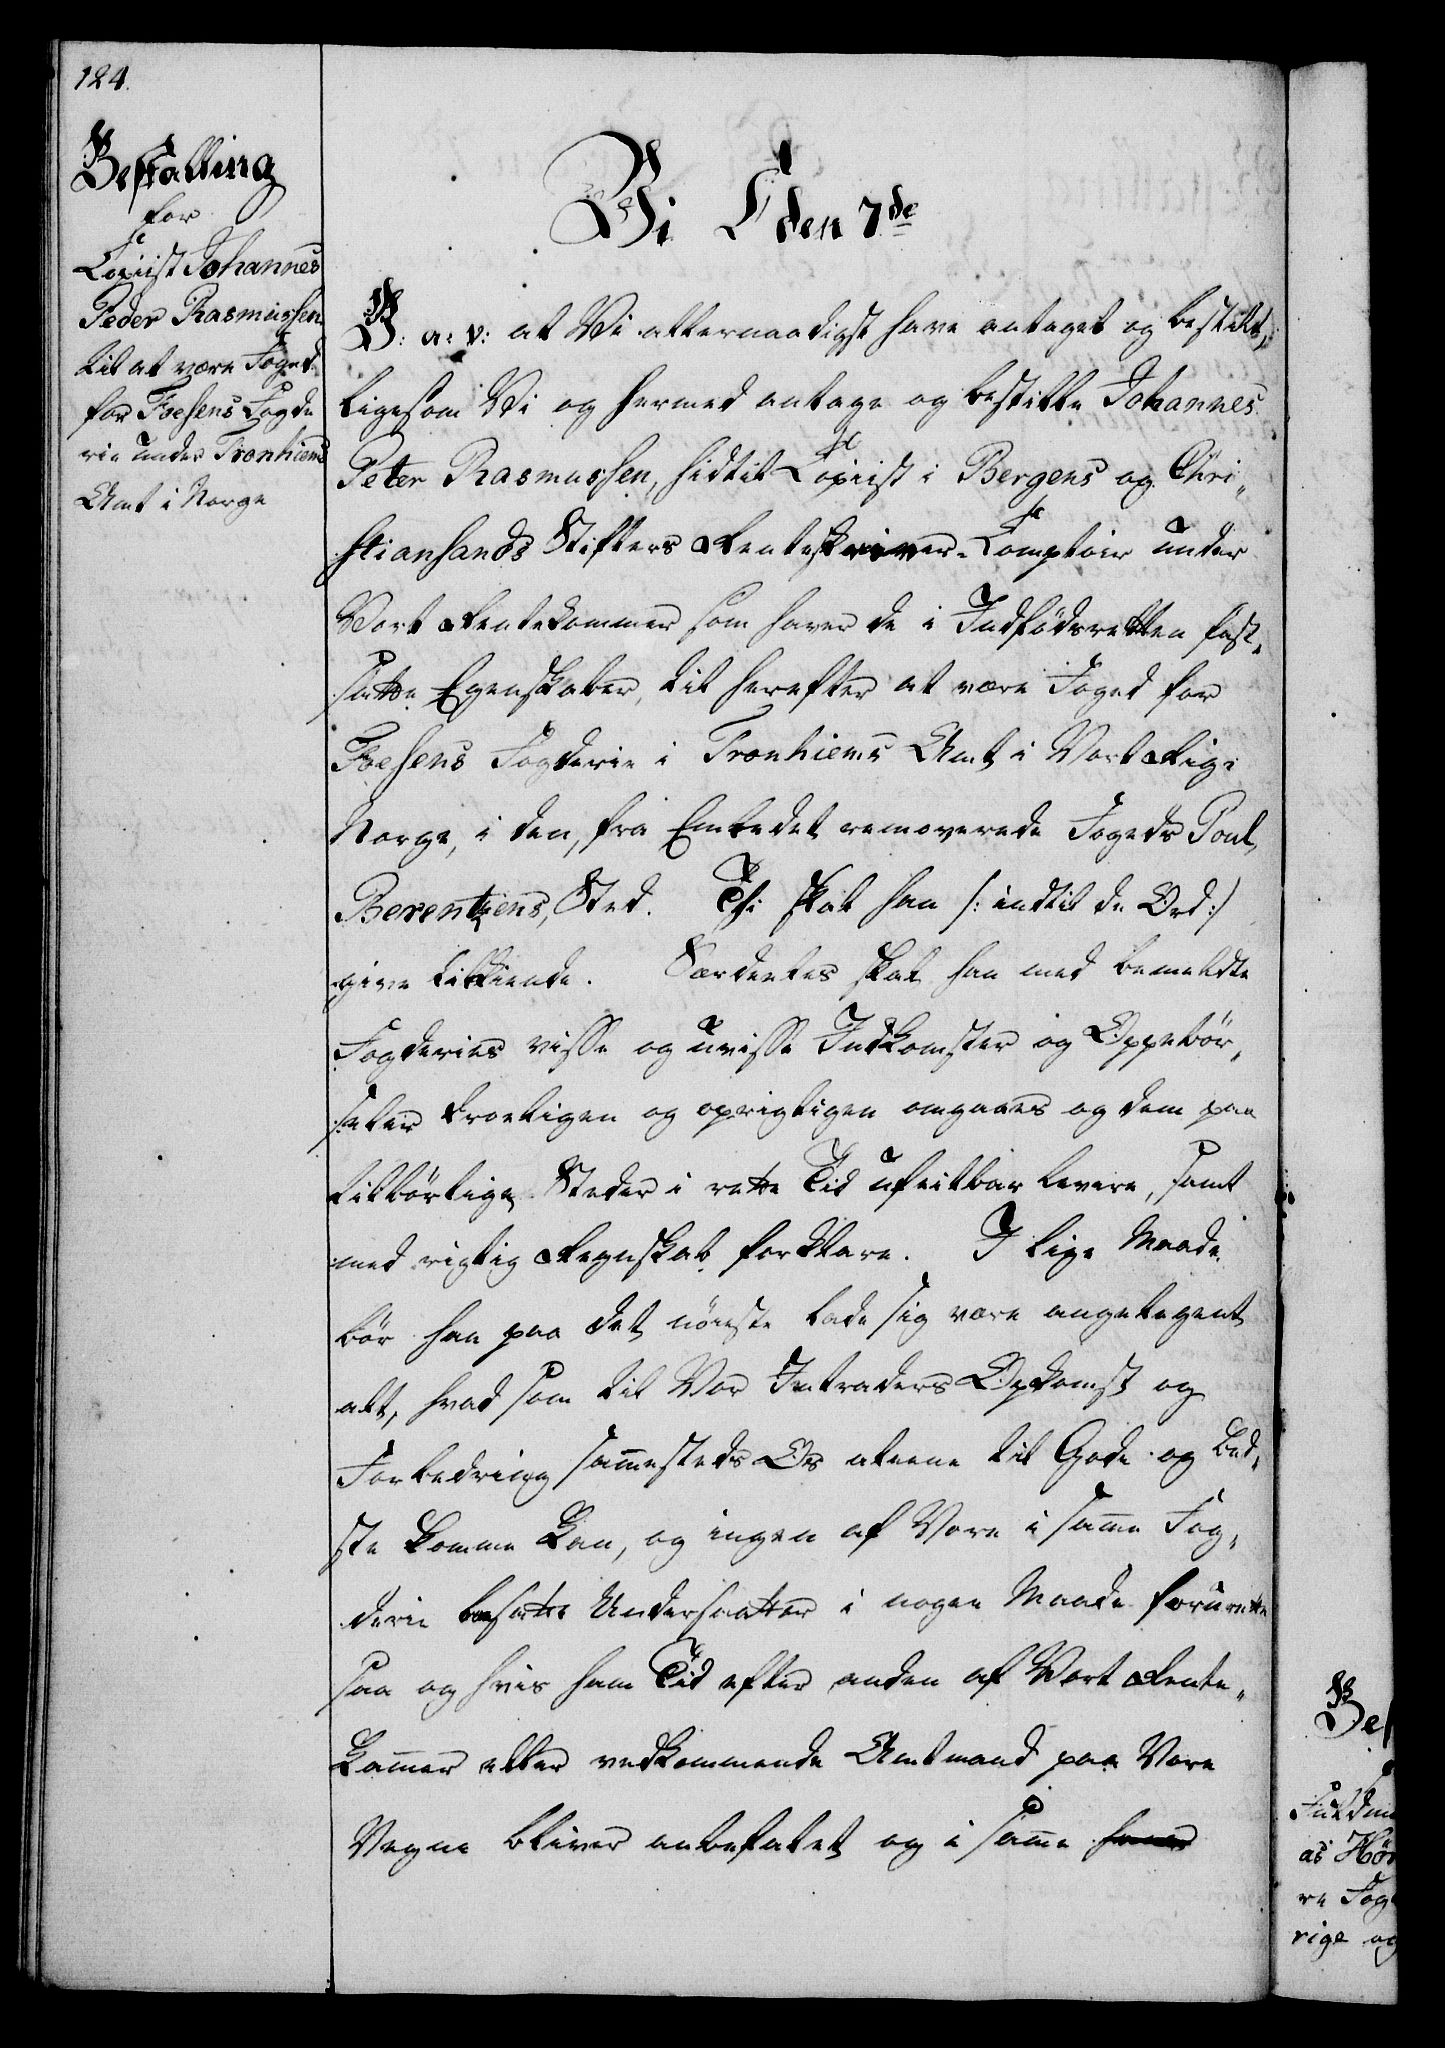 124.
Bestalling
for
Copiist Johannes
Peder Rasmussen
til at være Foged
for Fosens Fogde
rie under Tronhiems
Amt i Norge
Vi C den 7de
G: a: v: at Vi allernaadigst have antaget og bestilt,
ligesom Vi og hermed antage og bestille Johannes
Peter Rasmussen, hidtil Copiist i Bergens og Chri„
stiansands Stifters Renteskriver-Comptoir under
Vort Rentekammer som haver de i Indfödsretten fast„
satte Egenskaber, til herefter at være Foged for
Foesens Fogderie i Tronhiems Amt i Vort Rige
Norge, i den, fra Embedet removerede Fogeds Poul
Berentzens, Sted. Thi skal han /: indtil de Ord :/
give tilkiende. Særdeeles skal han med bemeldte
Fogderies visse og uvisse Indkomster og Oppebör„
seler troeligen og oprigtigen omgaaes og dem paa
tilbörlige Steder i rette Tid ufeilbar levere, samt
med rigtig Regnskab forklare. I lige Maade
bör han paa det nöieste lade sig være angelegent
alt, hvad som til Vor Intraders Opkomst og
Forbedring sam̄esteds Os aleene til Gode og Bed„
ste komme kan, og ingen af Vore i sam̄e Fog„
derie besatte Undersaatter i nogen Maade forurette
saa og hvis ham Tid efter anden af Vort Rente„
kam̄er eller vedkommende Amtmand paa Vore
Vegne bliver anbefalet og i sam̄e
Bes
Fuldm
as Hö
re Fog
rige og